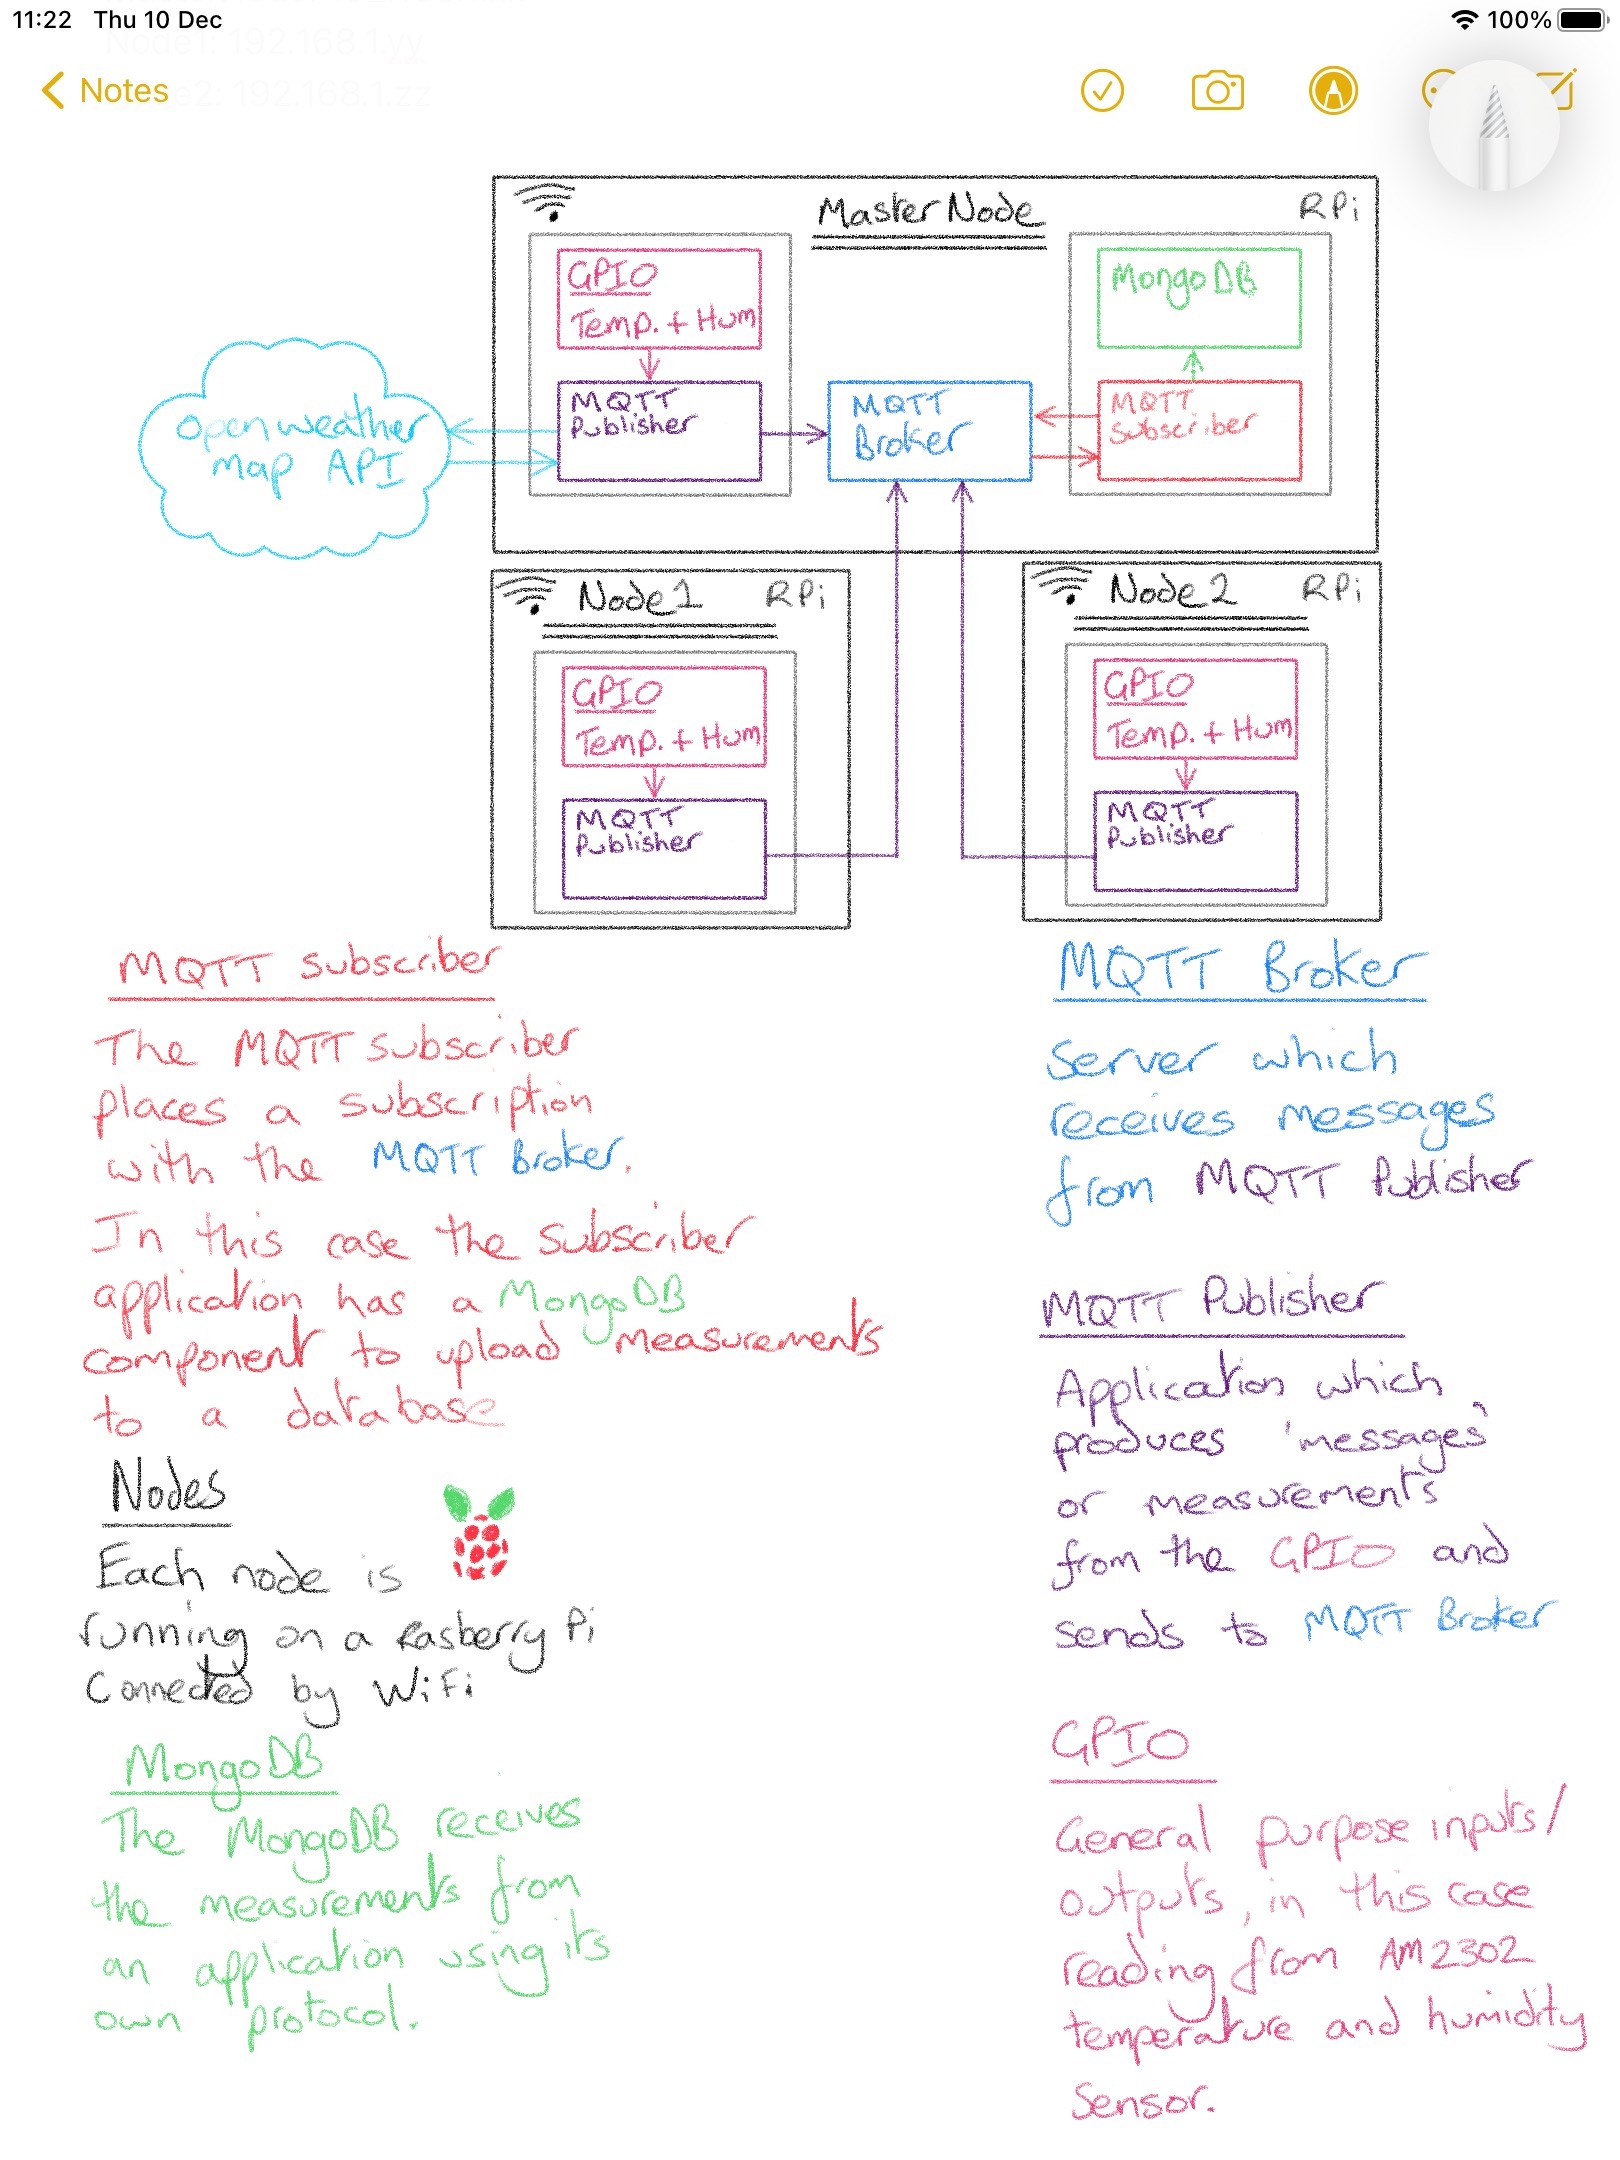 11:22 Thu 10 Dec
100%
Node1: 192.168.1.yy
Notes
e2: 192.168.1.zz
Master Node
RPi
GPIO
Temp. + Hum
MongoDB
Openweather
map API
MQTT
Publisher
MQTT
Broker
MQTT
Subscriber
Node 1
RPi
Node 2
RPi
GPIO
Temp. + Hum
GPIO
Temp. + Hum
MQTT
Publisher
MQTT
Publisher
MQTT Subscriber
The MQTT subscriber
places a subscription
with the MQTT Broker.
In this case the Subscriber
application has a MongoDB
component to upload measurements
to a database
Nodes
Each node is
running on a Rasberry Pi
Connected by WiFi
MongoDB
The MongoDB receives
the measurements from
an application using its
own protocol.
MQTT Broker
Server which
receives messages
from MQTT Publisher
MQTT Publisher
Application which
produces 'messages'
or measurements
from the GPIO and
sends to MQTT Broker
GPIO
General purpose inputs/
outputs, in this case
reading from AM2302
temperature and humidity
Sensor.